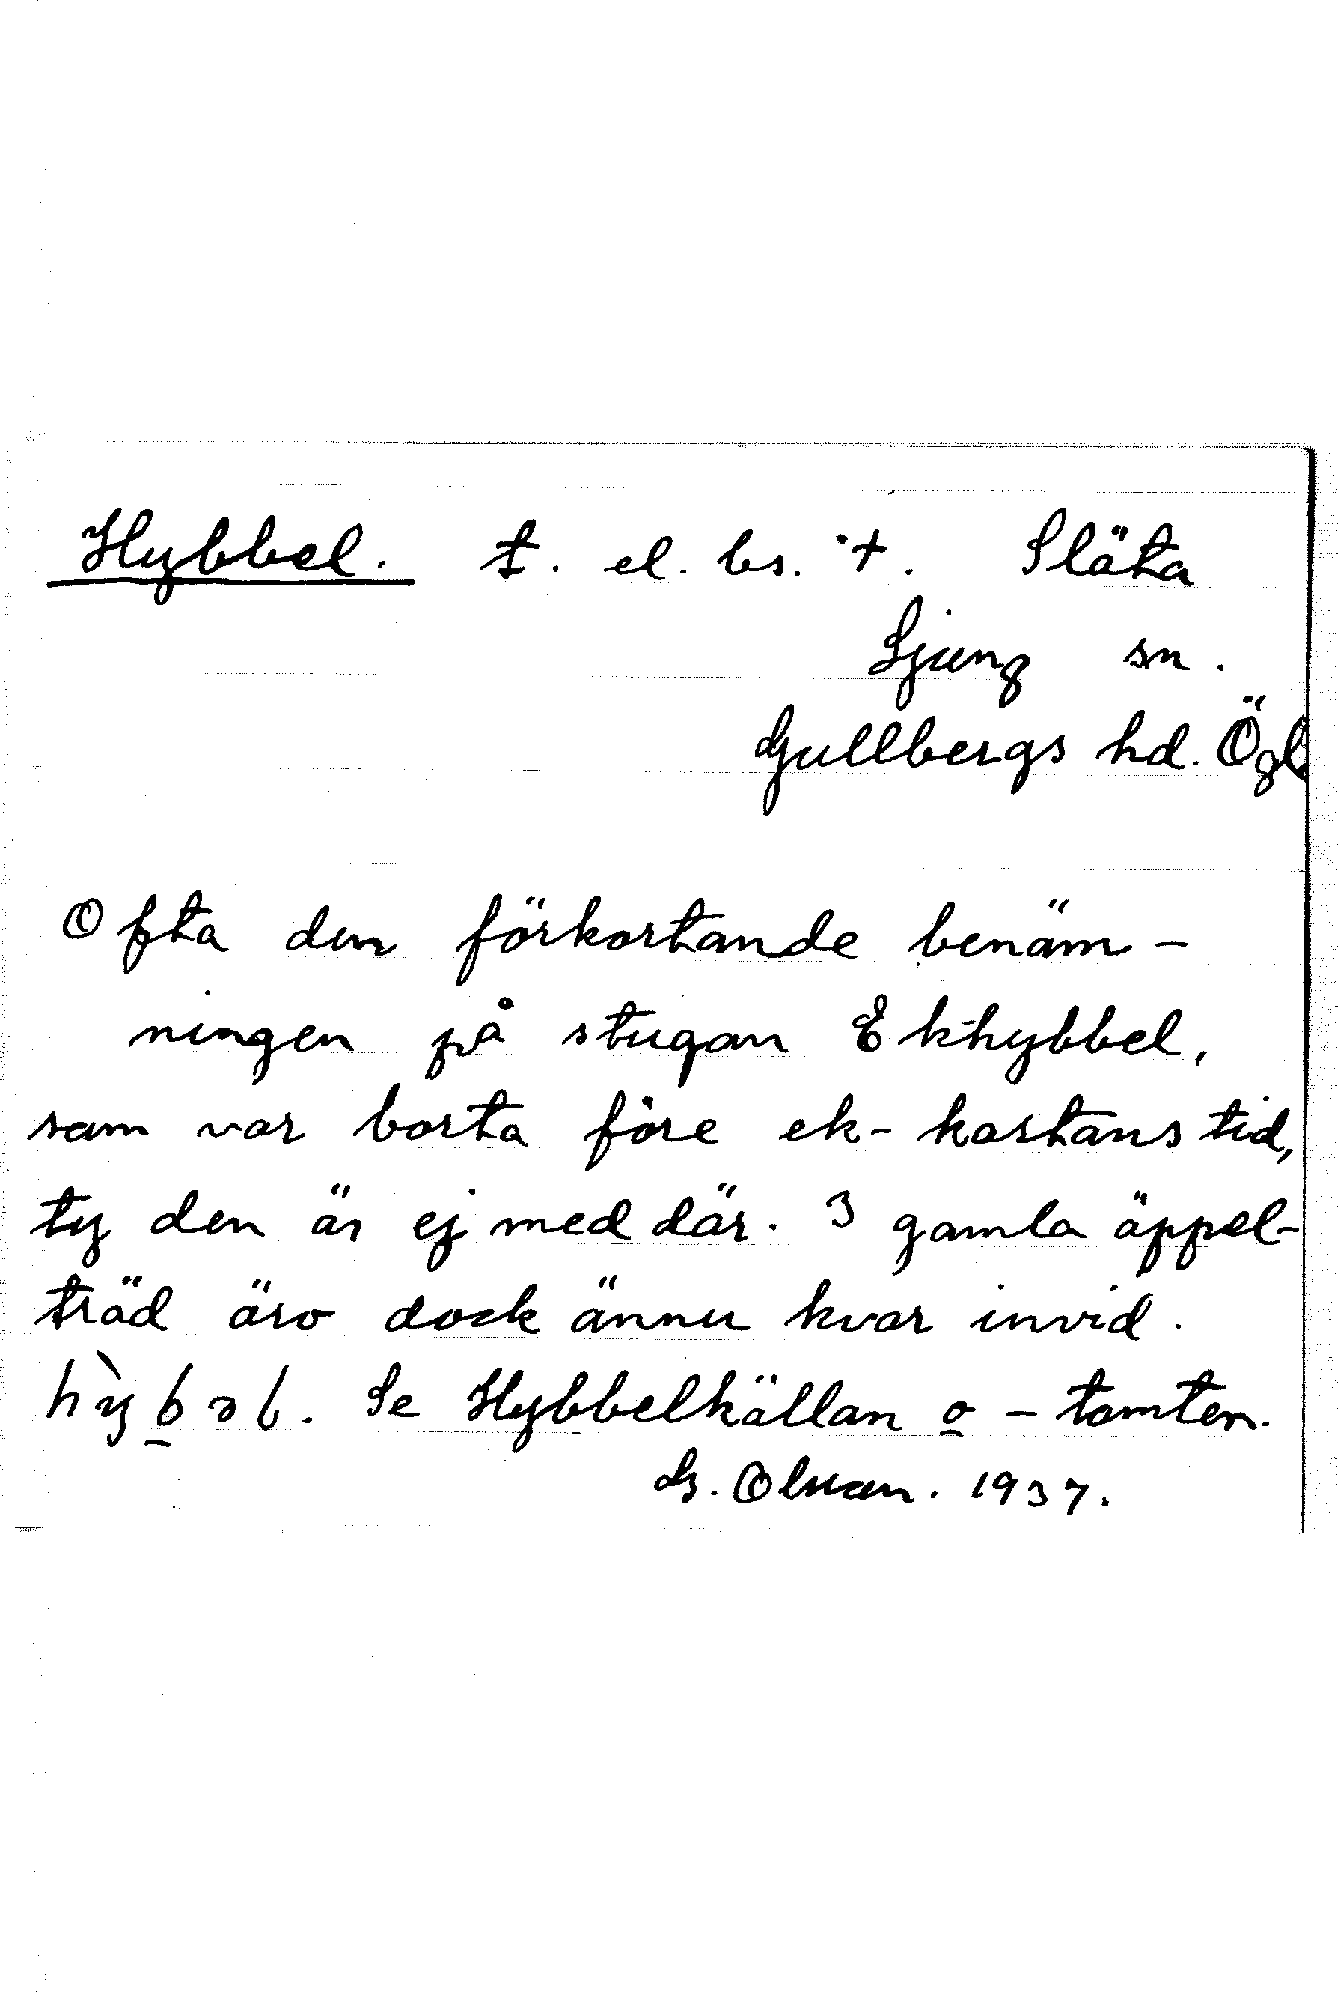 Hybbel. t. el. bs. +. Släta
Ljung sn.
Gullbergs hd. Ögl.
Ofta den förkortande benäm-
ningen på stugan Ekhybbel,
som var borta före ek-kartans tid,
ty den är ej med där. 3 gamla äppel-
träd äro dock ännu kvar invid.
hỳbəl. Se Hybbelkällan o -tomten.
G. Olsson. 1937.